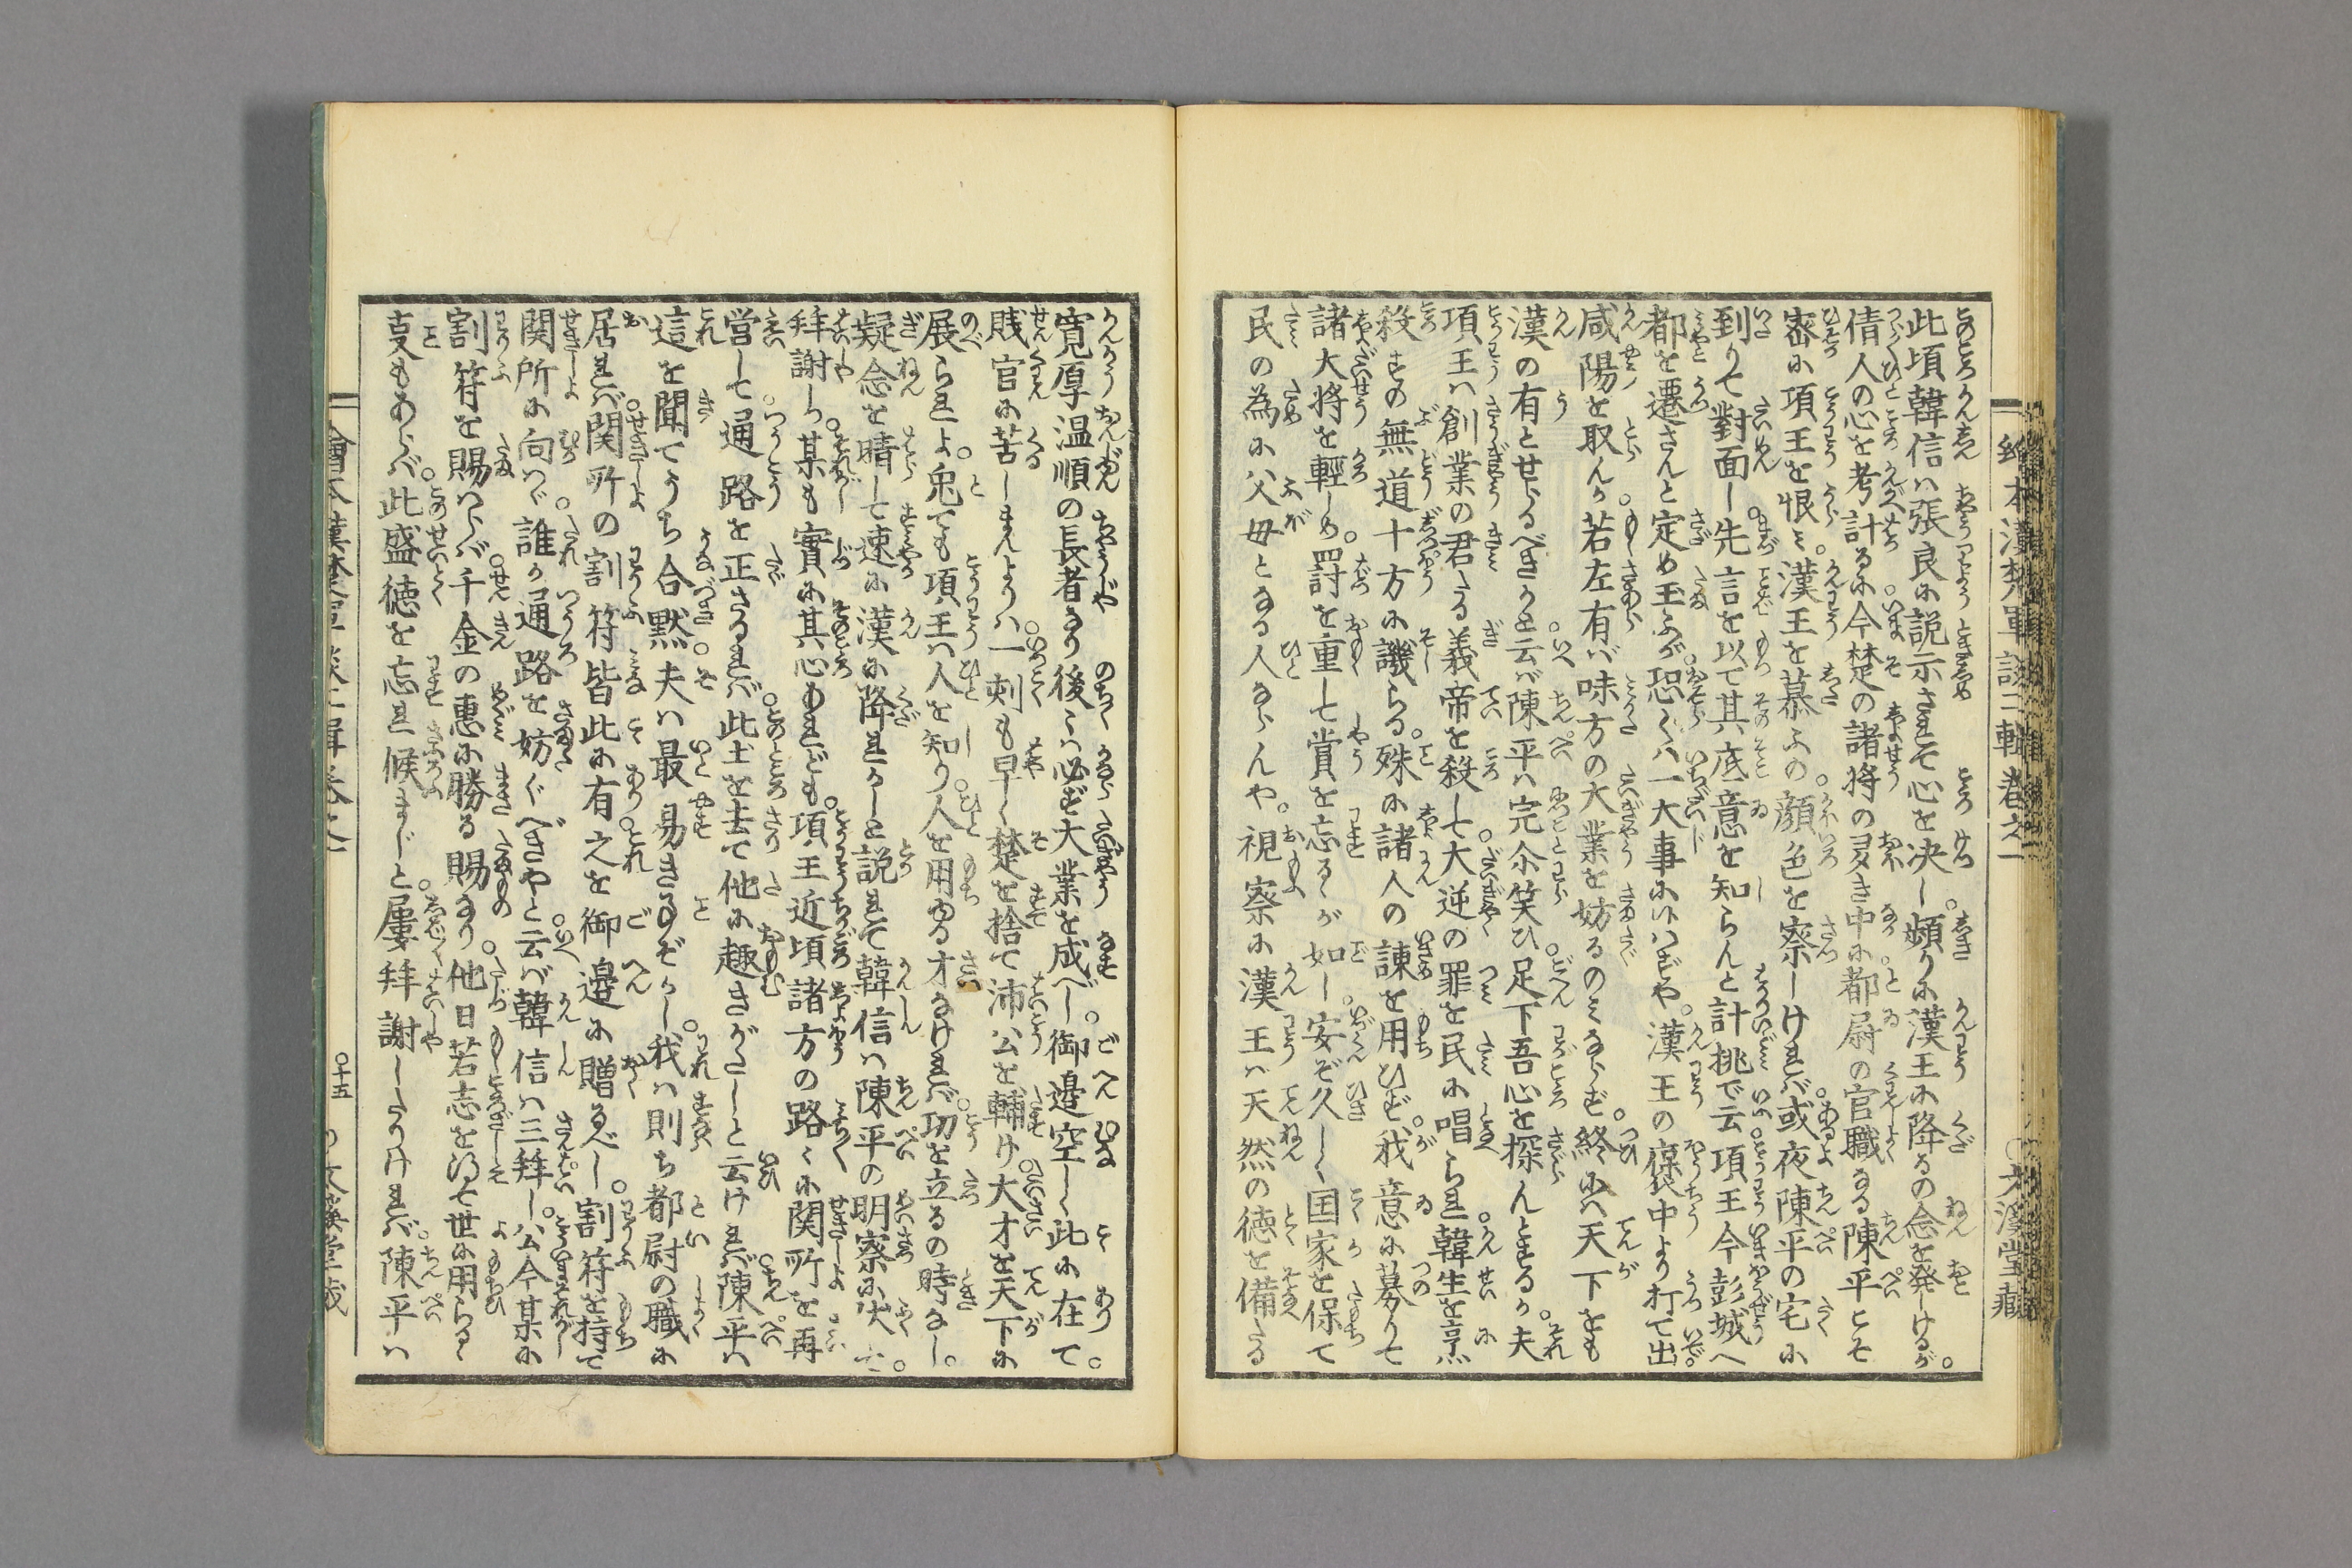 繪本漢楚軍談二輯卷之一
〇文溪堂藏
此頃韓信ハ張良に説示されて心を决し。頻りに漢王に降るの念を発しけるが。
倩人の心を考計るに。今楚の諸将の多き中に。都尉の官職なる陳平こそ
密に項王を恨ミ。漢王を慕ふの顔色を察しけれバ。或夜陳平の宅に
到りて對面し。先言を以て其底意を知らんと計挑で云。項王今彭城へ
都を遷さんと定め玉ふが。恐くハ一大事に候ハずや。漢王の褒中より打て出。
咸陽を取んか。若左有バ味方の大業を妨るのミならず。終にハ天下をも
漢の有とせらるべきかと云バ。陳平ハ完尓笑ひ。足下吾心を探んとするか。夫
項王ハ創業の君たる義帝を殺して。大逆の罪を民に唱られ。韓生を烹
殺すの無道十方に譏らる。殊に諸人の諫を用ひず。我意に募りて
諸大将を輕しめ。罰を重して賞を忘るゝが如し。安ぞ久しく国家を保て
民の為に父母となる人ならんや。視察に漢王ハ天然の徳を備たる
寛厚温順の長者なり後々ハ必ず大業を成べし。御邉空しく此に在て。
賎官に苦しまんよりハ。一刺も早く楚を捨て沛公を輔け。大才を天下に
展られよ。兎ても項王ハ人を知り。人を用ゆる才なけれバ。功を立るの時なし。
疑念を晴して速に漢に降れかしと説れて。韓信ハ陳平の明察に伏し。
拜謝し。某も實に其心あれども。項王近頃諸方の路々に関所を再
営して。通路を正さるれバ。此土を去て他に趣きがたしと云けれバ。陳平ハ
這を聞てうち合黙。夫ハ最易き事ぞかし。我ハ則ち都尉の職に
居れバ。関所の割符皆此に有。之を御邉に贈るべし。割符を持て
関所に向ハゞ。誰か通路を妨ぐべきやと云バ。韓信ハ三拜し。公今某に
割符を賜ハらバ。千金の惠に勝る賜なり。他日若志を得て世に用らるゝ
事もあらバ。此盛徳を忘れ候まじと。屢拜謝しゝたりけれバ。陳平ハ
〇十五